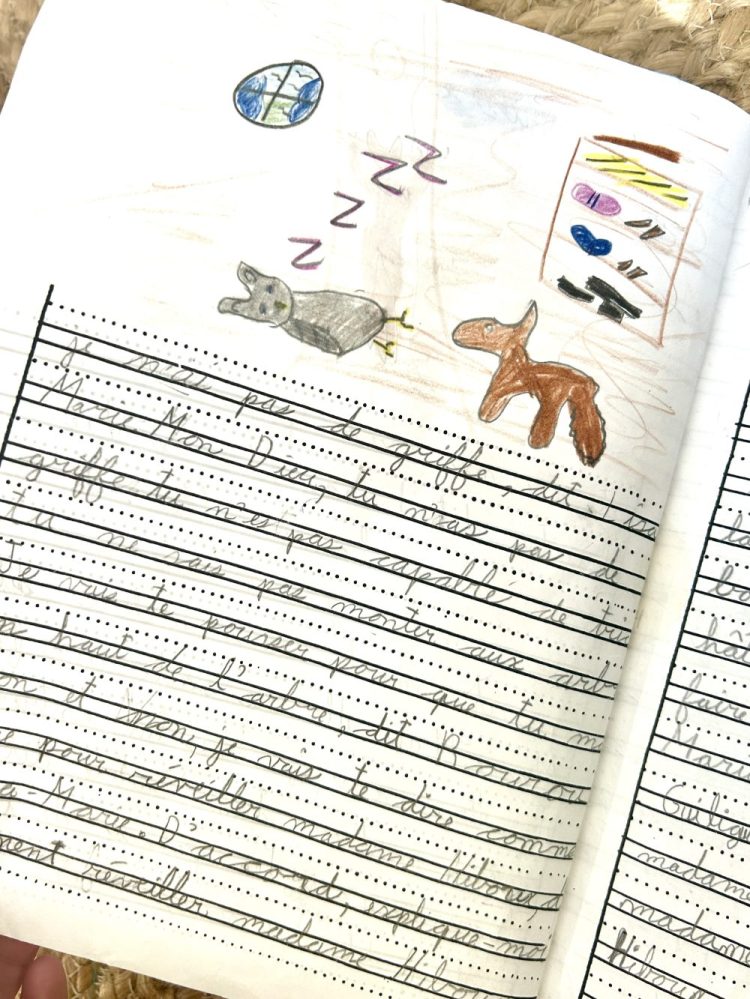 Z
Z
Z
Z
je n'ai pas de griffe, dit
Marie Mon Dieu, tu n'as pas de
griffe tu n'es pas capable de
tu ne sais pas monter aux arb
Je vais te pousser pour que tu m
haut de l'arbre, dit Rourou
on et Non, je vais te dire comme
pour réveiller madame Hibou, d
a-Marie. D'accord, explique-mo
ment réveiller madame Hibou
faire
Marie
Guilig
madam
madame
Hibou